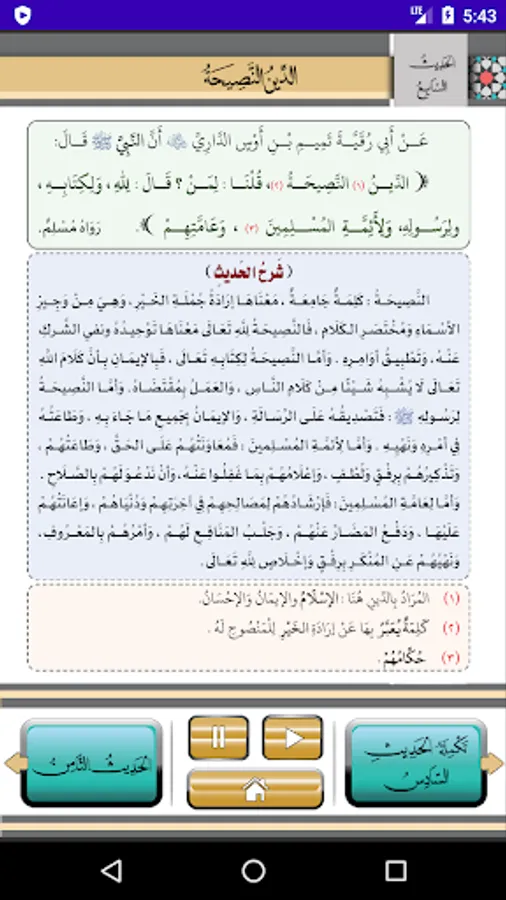 LTE 5:43
الحَدِيثُ
السَّابِعُ
الدِّينُ النَّصِيحَةُ
عَنْ أَبِي رُقَيَّةَ تَمِيمِ بْنِ أَوْسٍ الدَّارِيِّ ﵁ أَنَّ النَّبِيَّ ﷺ قَالَ:
﴿ الدِّينُ (١) النَّصِيحَةُ (٢)، قُلْنَا : لِمَنْ ؟ قَالَ : لِلهِ ، وَلِكِتَابِهِ ،
ولِرَسُولِهِ، وَلِأَئِمَّةِ المُسْلِمِينَ (٣) ، وَعَامَّتِهِمْ ﴾. رَوَاهُ مُسْلِمٌ.
( شَرْحُ الحَدِيثِ )
النَّصِيحَةُ : كَلِمَةٌ جَامِعَةٌ ، مَعْنَاهَا إِرَادَةُ جُمْلَةِ الخَيْرِ ، وَهِيَ مِنْ وَجِيزِ
الأَسْمَاءِ وَمُخْتَصَرِ الكَلَامِ ، فَالنَّصِيحَةُ لِلهِ تَعَالَى مَعْنَاهَا تَوْحِيدُهُ وَنَفْيُ الشَّرِكِ
عَنْهُ ، وَتَطْبِيقُ أَوَامِرِهِ . وَأَمَّا النَّصِيحَةُ لِكِتَابِهِ تَعَالَى ، فَبِالإِيمَانِ بِأَنَّ كَلَامَ اللهِ
تَعَالَى لَا يُشْبِهُ شَيْئًا مِنْ كَلَامِ النَّاسِ ، وَالعَمَلُ بِمُقْتَضَاهُ. وَأَمَّا النَّصِيحَةُ
لِرَسُولِهِ ﷺ : فَتَصْدِيقُهُ عَلَى الرِّسَالَةِ ، وَالإِيمَانُ بِجَمِيعِ مَا جَاءَ بِهِ ، وَطَاعَتُهُ
فِي أَمْرِهِ وَنَهْيِهِ . وَأَمَّا لِأَئِمَّةِ المُسْلِمِينَ : فَمُعَاوَنَتُهُمْ عَلَى الحَقِّ ، وَطَاعَتُهُمْ ،
وَتَذْكِيرُهُمْ بِرِفْقٍ وَلُطْفٍ ، وَإِعْلَامُهُمْ بِمَا غَفِلُوا عَنْهُ ، وَأَنْ نَدْعُوَ لَهُمْ بِالصَّلَاحِ .
وَأَمَّا لِعَامَّةِ المُسْلِمِينَ : فَإِرْشَادُهُمْ لِمَصَالِحِهِمْ فِي آخِرَتِهِمْ وَدُنْيَاهُمْ ، وَإِعَانَتُهُمْ
عَلَيْهَا . وَدَفْعُ المَضَارِّ عَنْهُمْ ، وَجَلْبُ المَنَافِعِ لَهُمْ ، وَأَمْرُهُمْ بِالمَعْرُوفِ ،
وَنَهْيُهُمْ عَنِ المُنْكَرِ بِرِفْقٍ وَإِخْلَاصٍ لِلهِ تَعَالَى.
(١) المُرَادُ بِالدِّينِ هُنَا : الإِسْلَامُ وَالإِيمَانُ وَالإِحْسَانُ.
(٢) كَلِمَةٌ يُعَبَّرُ بِهَا عَنْ إِرَادَةِ الخَيْرِ لِلْمَنْصُوحِ لَهُ .
(٣) حُكَّامُهُمْ .
تَكْمِلَةُ الحَدِيثِ
السَّادِسُ
الحَدِيثُ الثَّامِنُ